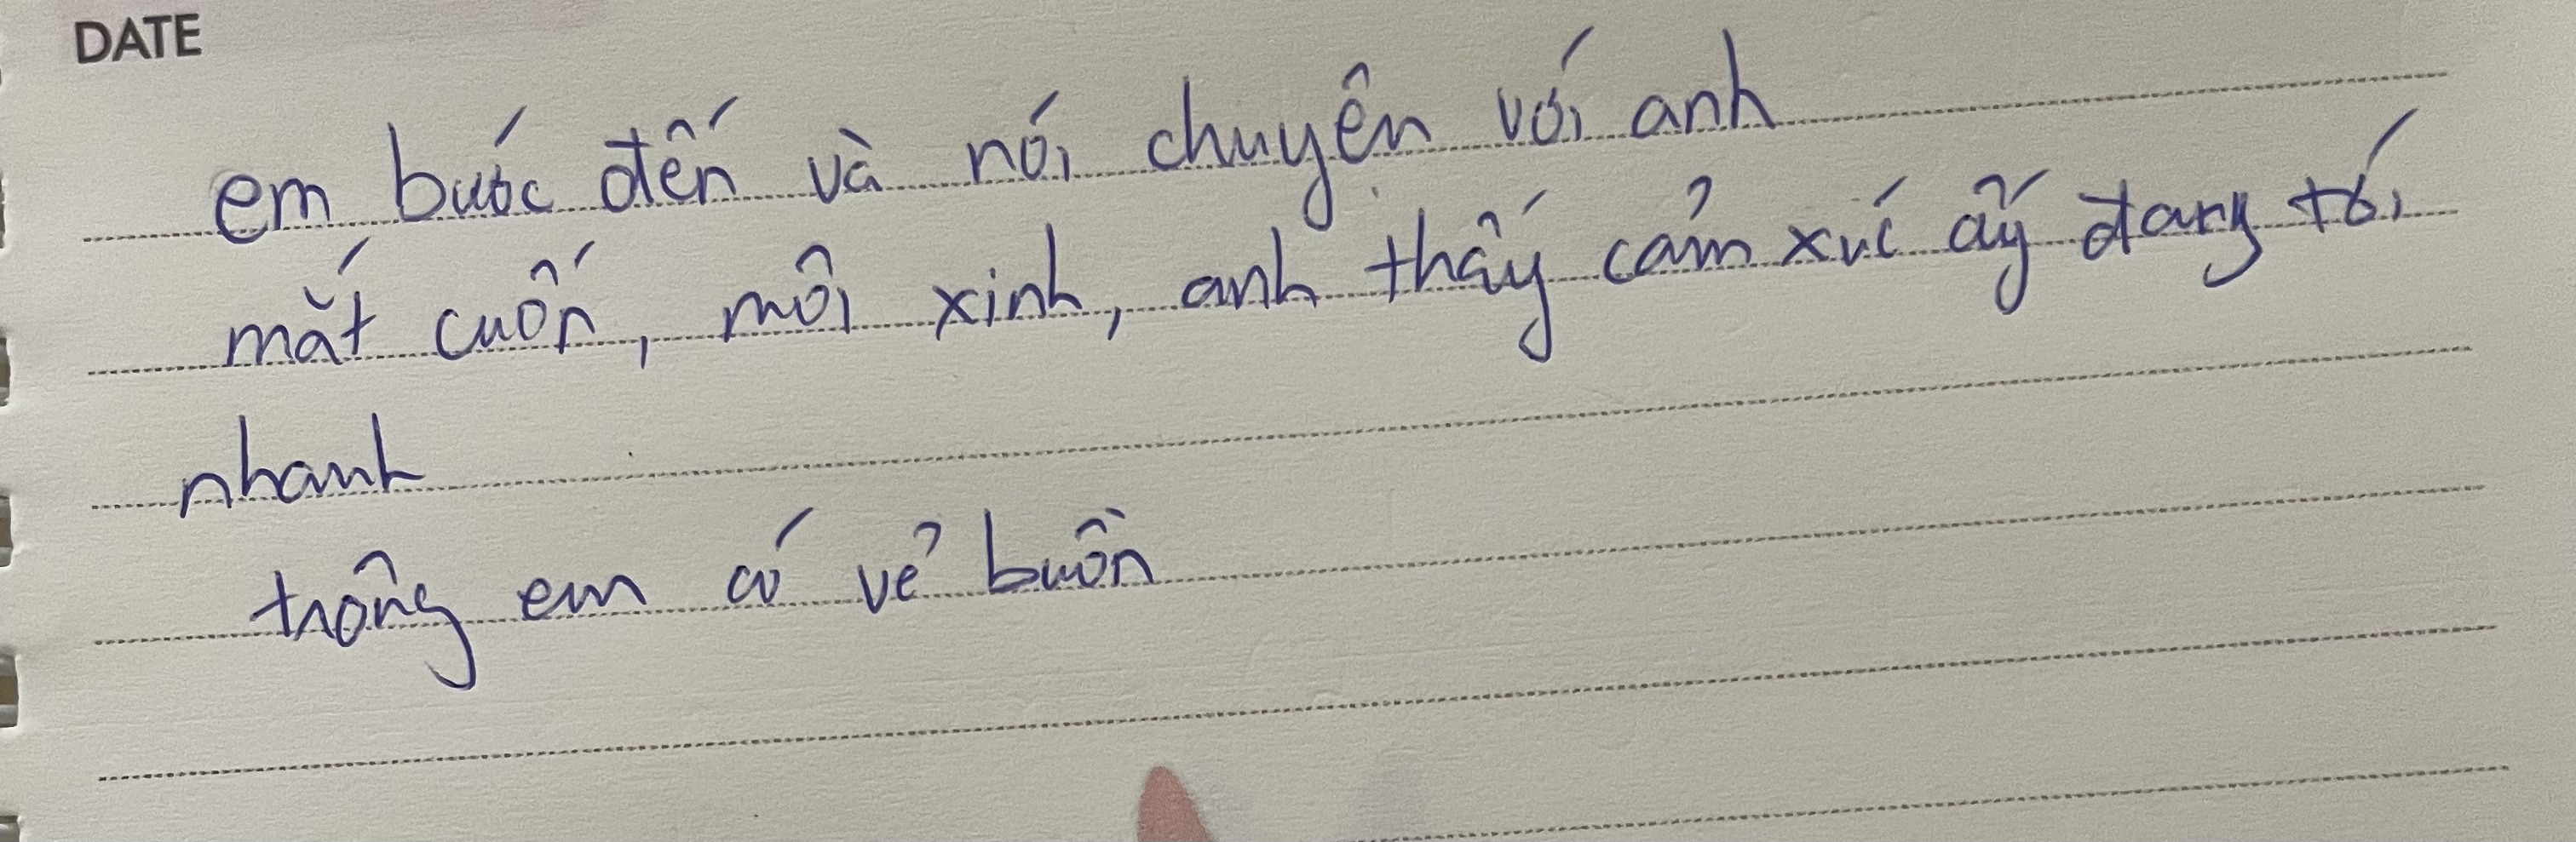 DATE
em bước đến và nói chuyện với anh
mắt cuốn, môi xinh, anh thấy cảm xúc ấy đang tới
nhanh
trông em có vẻ buồn